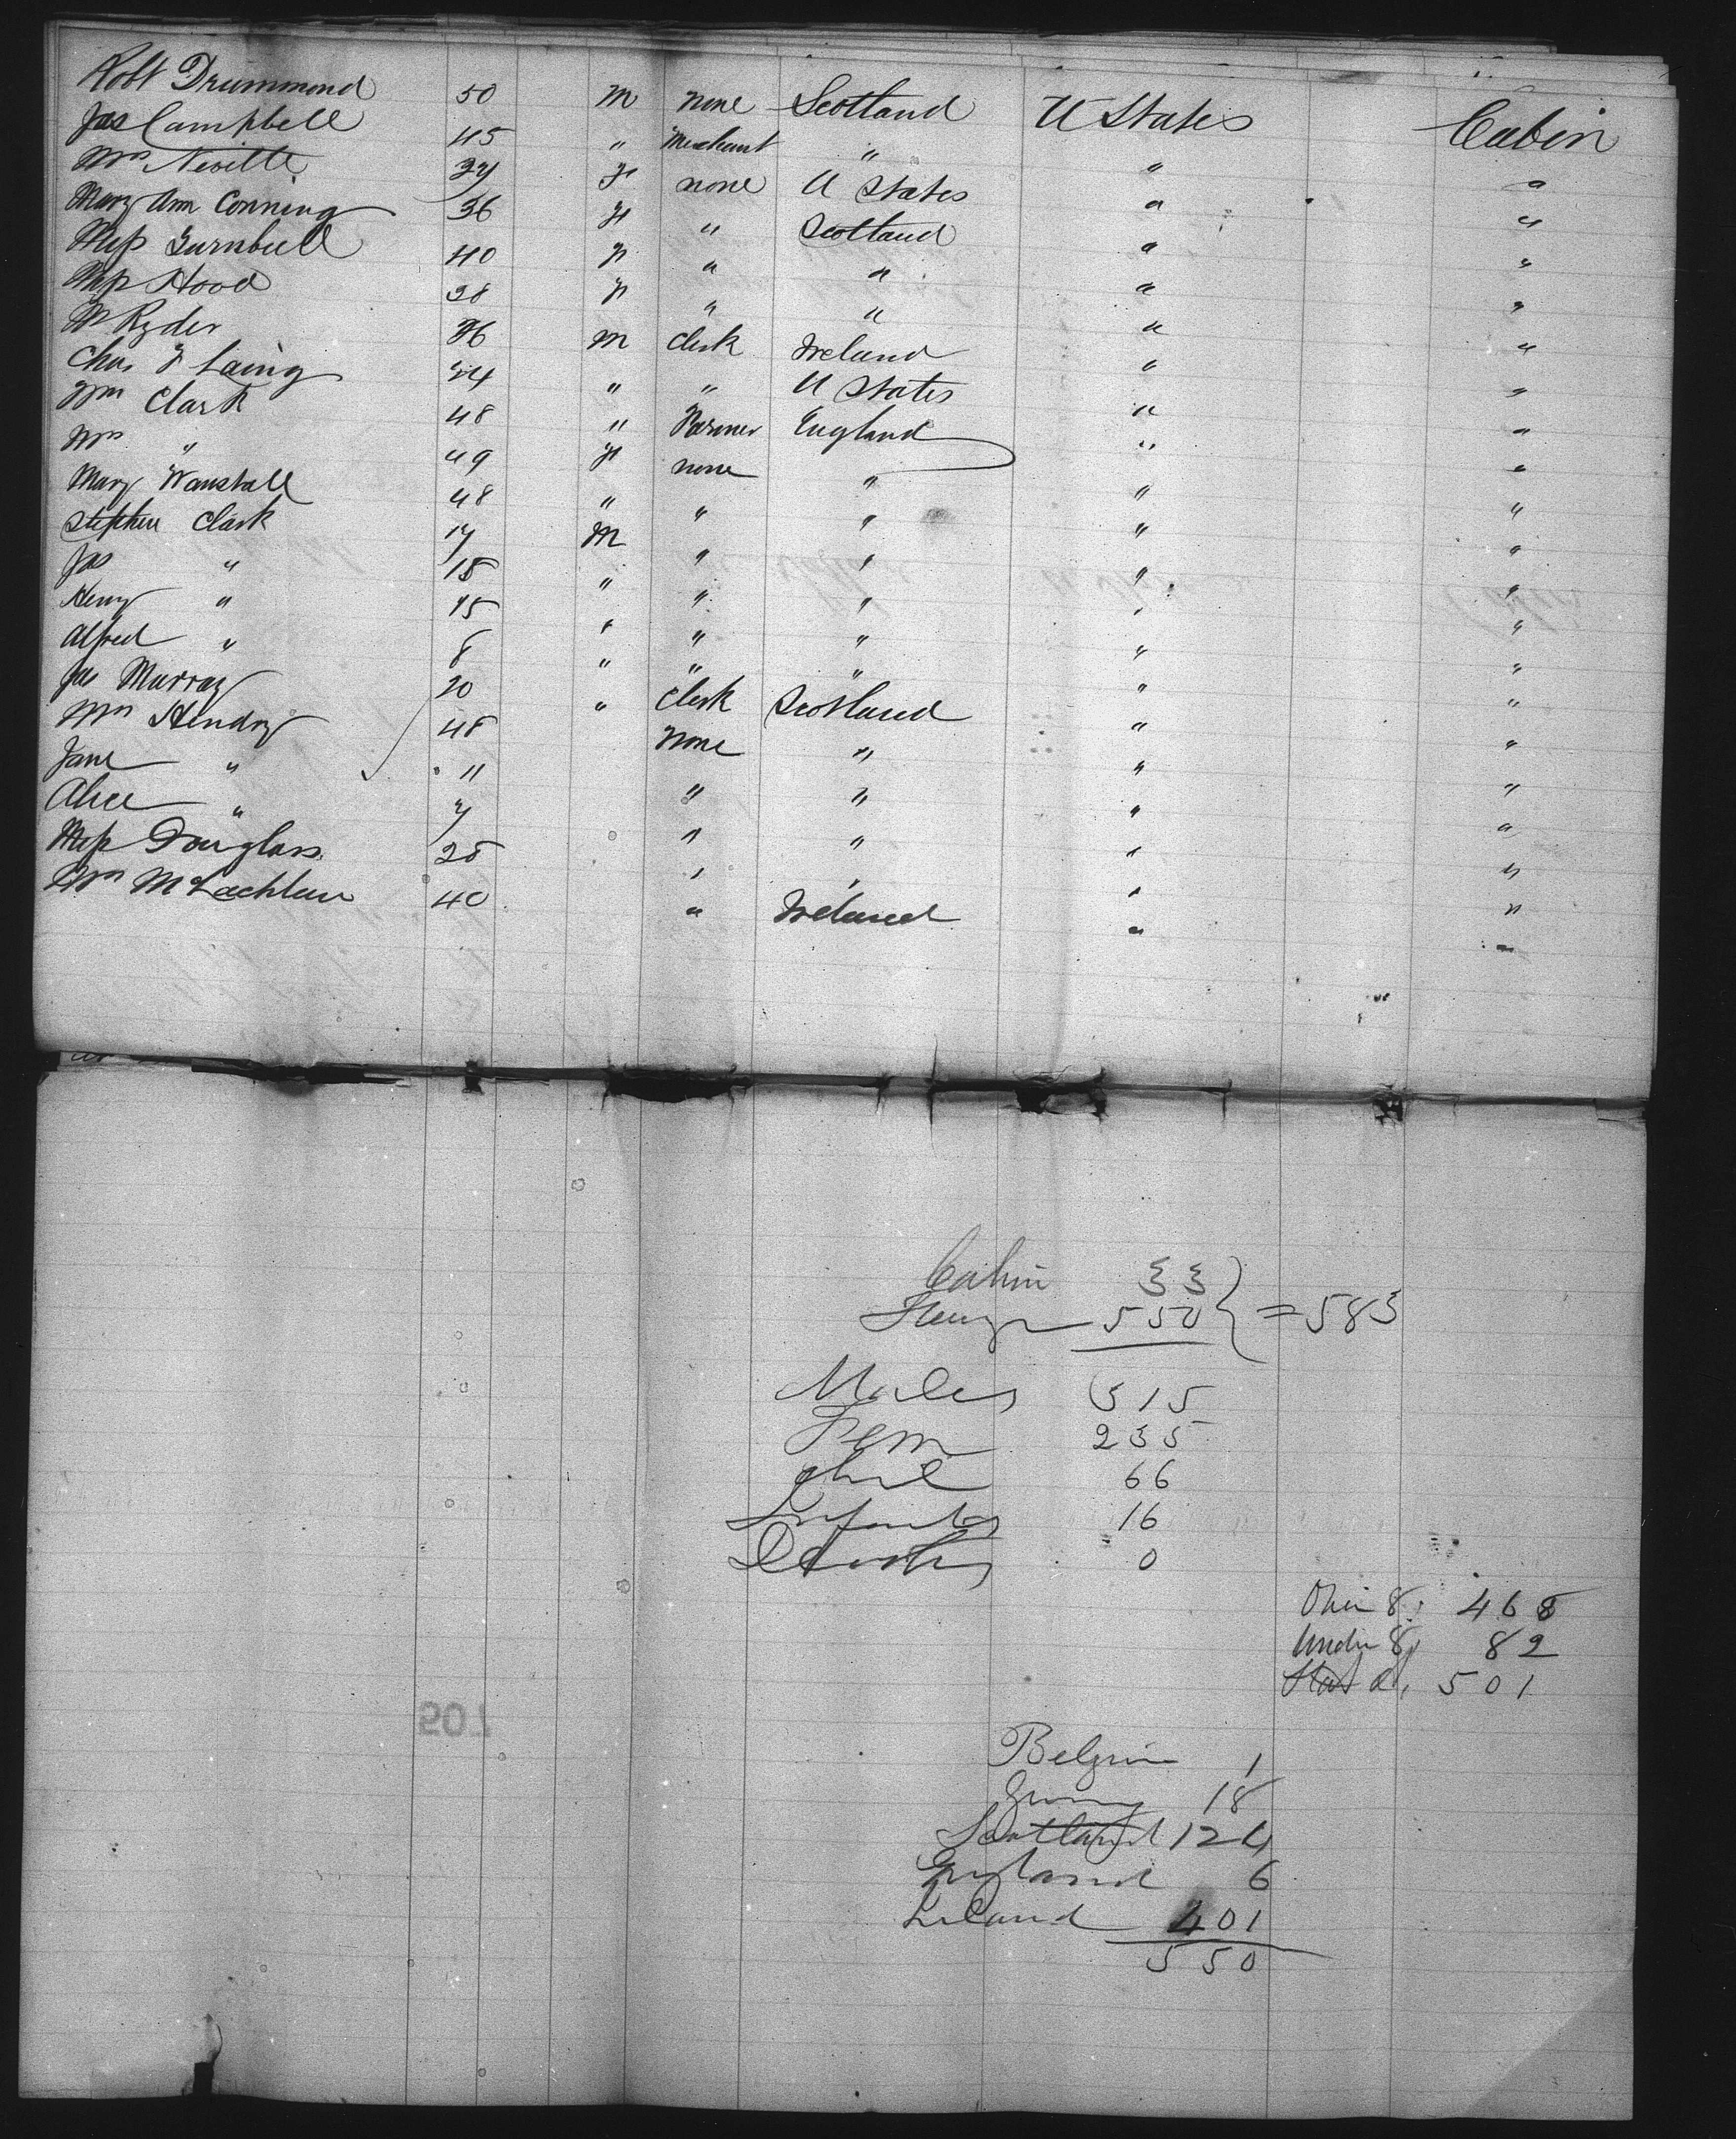 Robt Drummond 50 M none Scotland U States Cabin
Jas Campbell 45 " Merchant " " "
Mrs Neville 27 F none U States " "
Mary Ann Conning 36 F " Scotland " "
Miss Turnbull 40 F " " " "
Miss Hood 28 F " " " "
M Ryder 26 M Clerk Ireland " "
Chas F Laing 24 " " U States " "
Wm Clark 48 " Farmer England " "
Mrs " 49 F none " " "
Mary Wanstall 48 " " " " "
Stephen Clark 17 M " " " "
Jas " 15 " " " " "
Henry " 15 " " " " "
Alfred " 8 " " " " "
Jas Murray 20 " Clerk Scotland " "
Mrs Hendry 48 None " " "
Jane " 11 " " " "
Alice " 7 " " " "
Miss Douglass 25 " " " "
Mrs McLachlan 40 " Ireland " "
Cabin 33
550 } = 583
Males 315
Fem 235
Chil 66
Infants 16
Deaths 0
Over 8 468
Under 8 82
501
Belgium 1
Germy 18
Scotland 124
England 6
Ireland 401
550